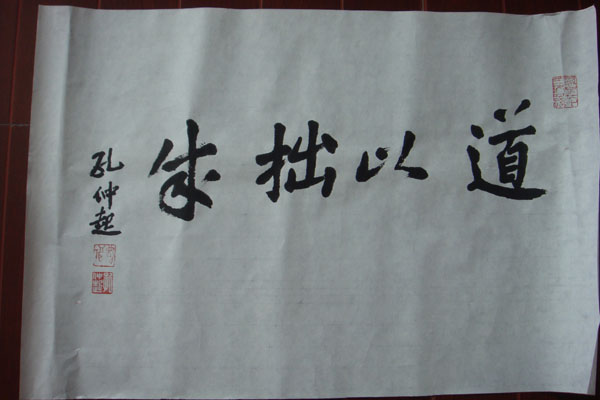 道以拙成
孔仲起